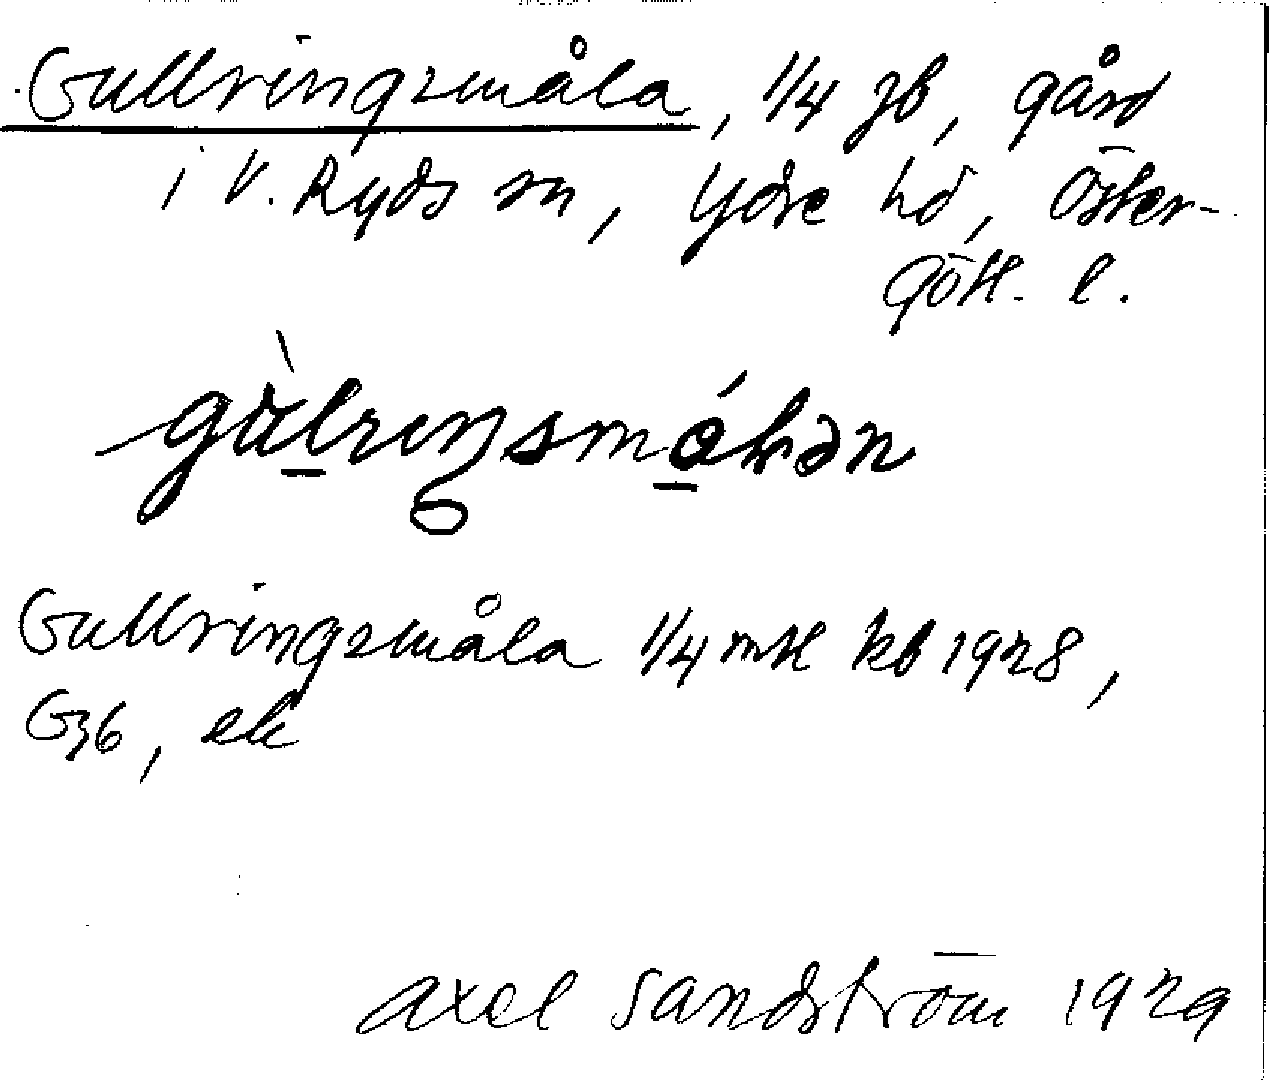 Gullringsmåla, 1/4 jb, gård
i V. Ryds sn, Ydre hd, Öster-
götl. l.
Gullringsmåla 1/4 mtl kb 1928,
G36, ek
Axel Sandström 1929